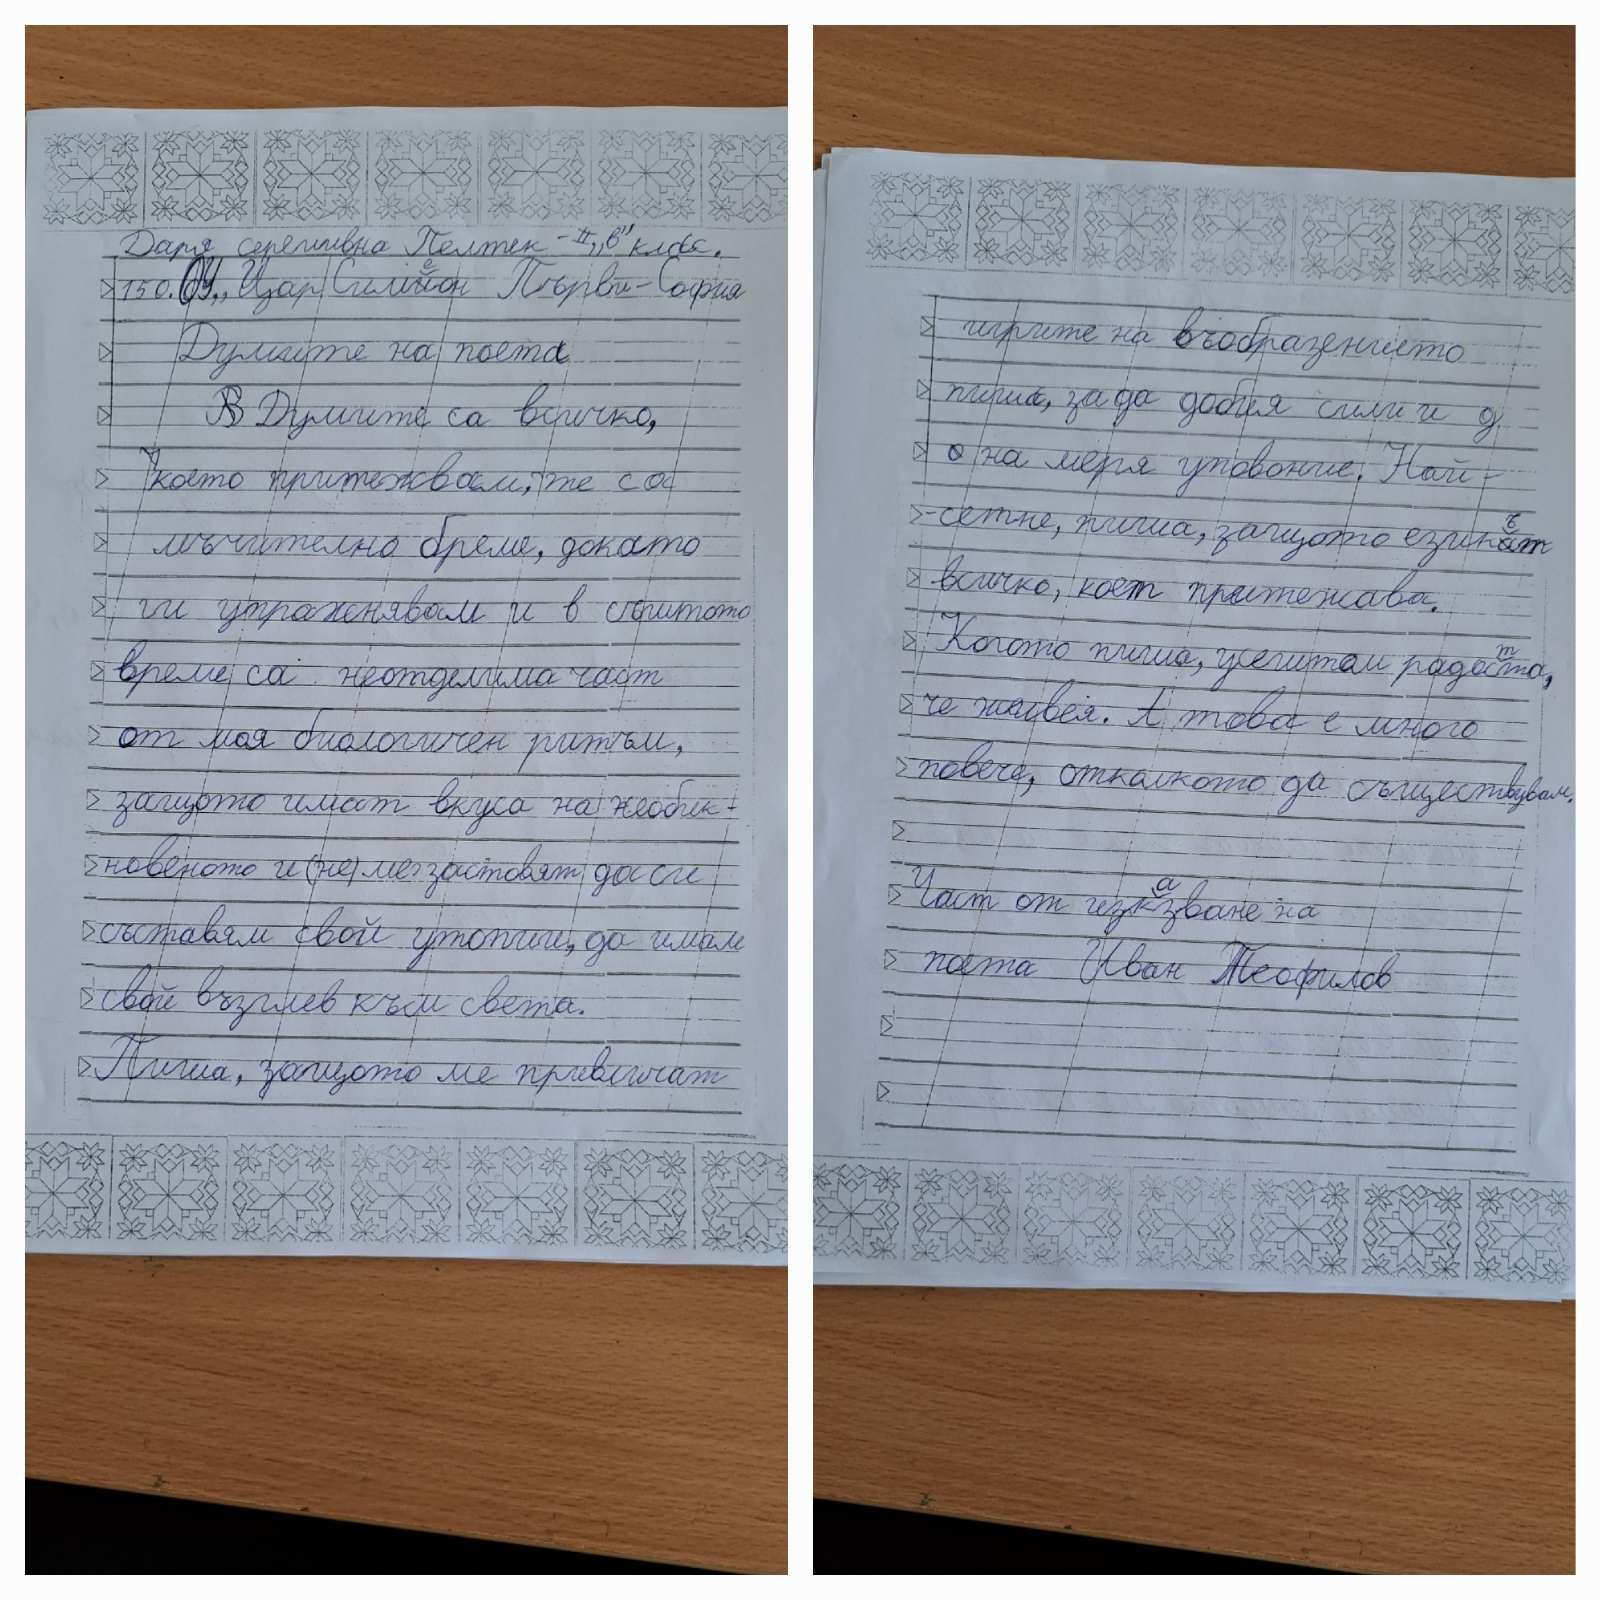 Даря серегивна Пелтек - II "в" клас.
150.ОУ "Цар Симеон Първи - София
Думите на поета
Думите са всичко,
което притежвам, те са
мъчително бреме, докато
ги упражнявам и в същото
време са неотделима част
от моя биологичен ритъм,
защото имат вкуса на необик-
новеното и (не) ме застовят да си
съставям свой утопии, да имам
свой възглев към света.
Пиша, защото ме привличат
игрите на въображението
пиша, за да добия сили и д
о на меря уповоние. Най-
-сетне, пиша, защото езикът
всичко, коет притежава.
Когото пиша, усещам радостта,
че живея. А това е много
повече, отколкото да съществувам.
Част от изказване на
поета Иван Теофилов